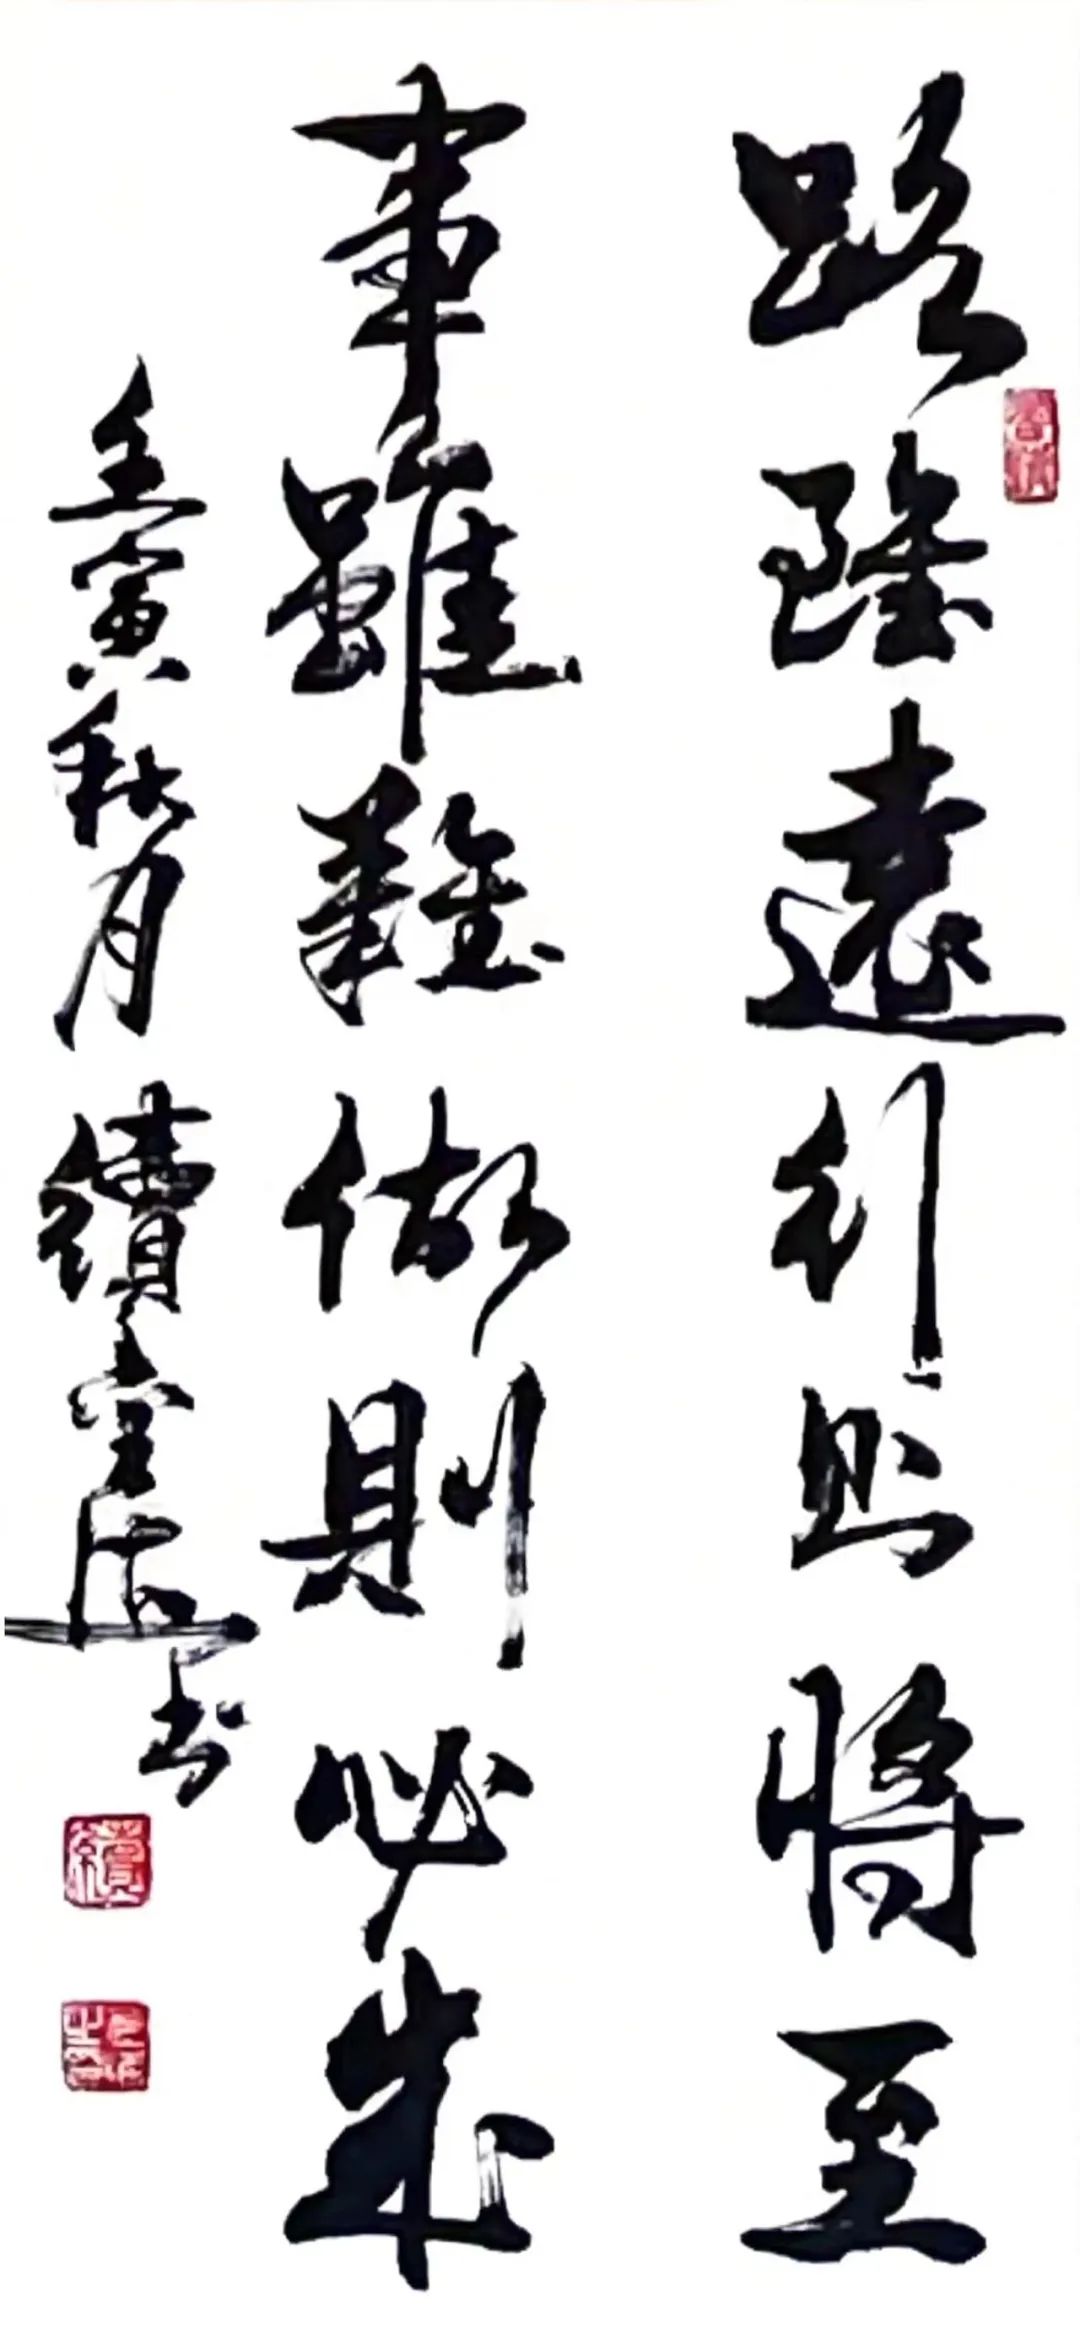 路雖遠行則將至
事雖難做則必成
壬寅秋月 續
書
續